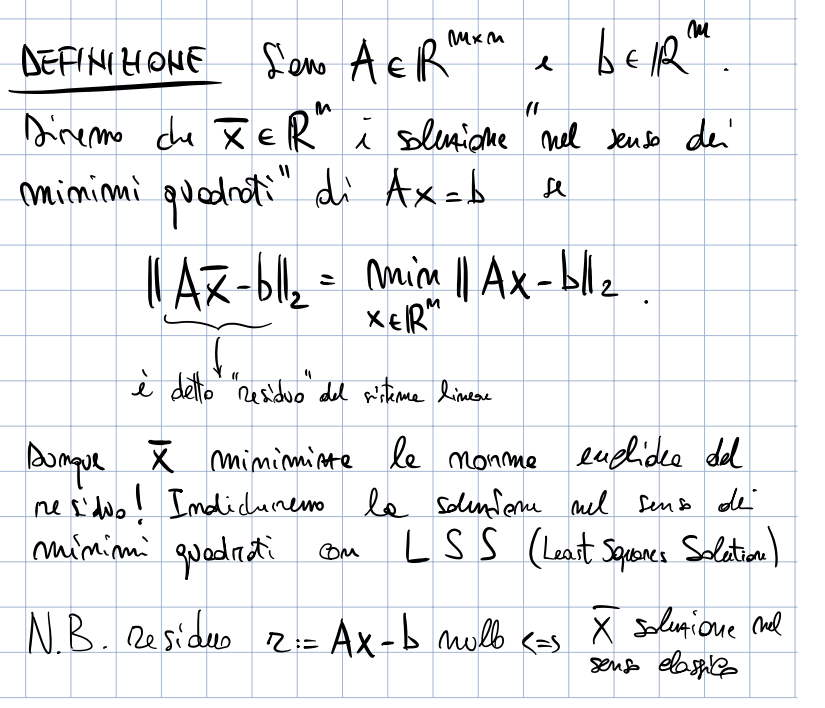 DEFINIZIONE Siano A ∈ ℝ^{m×n} e b ∈ ℝ^m.
Diremo che x̅ ∈ ℝ^n è soluzione "nel senso dei
minimi quadrati" di Ax = b se
‖Ax̅ - b‖₂ = min ‖Ax - b‖₂ .
x ∈ ℝ^n
è detto "residuo" del sistema lineare
Dunque x̅ minimizza la norma euclidea del
residuo! Indicheremo la soluzione nel senso dei
minimi quadrati con LSS (Least Squares Solution)
N.B. residuo r := Ax - b nullo <=> x̅ soluzione nel
senso classico